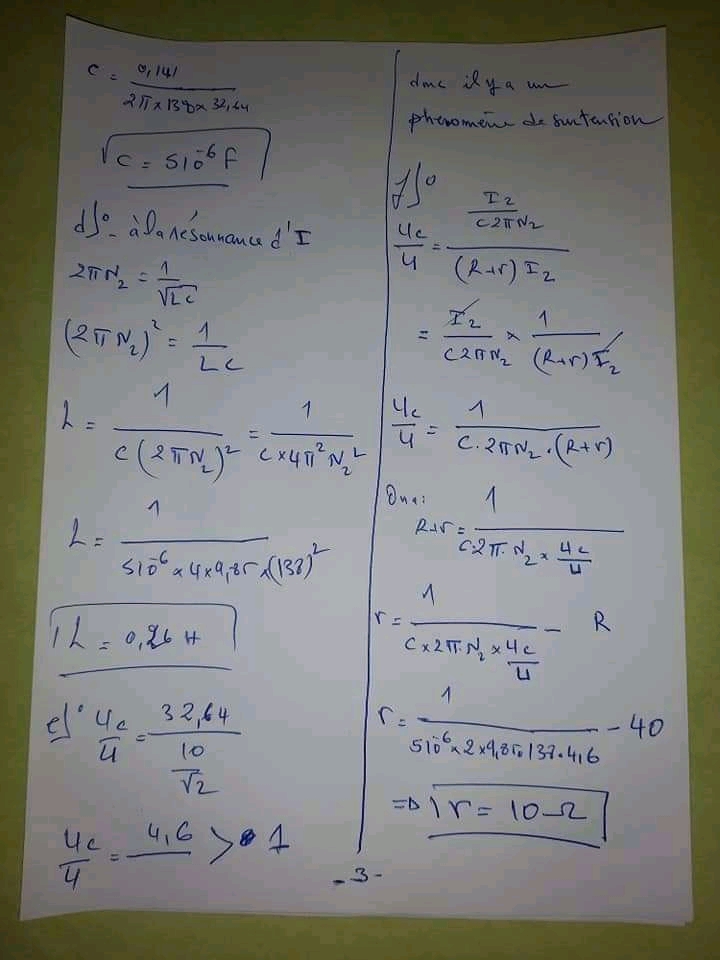 C = 0,141 / 2π×138×32,64
C = 510⁻⁶ F
d)°- à la résonnance d'I
2πN₂ = 1/√LC
(2πN₂)² = 1/LC
L = 1/C(2πN₂)² = 1/C×4π²N₂²
L = 1/510⁻⁶×4×9,85×(138)²
L = 0,26 H
e)° Uc/U = 32,64 / 10/√2
Uc/U = 4,6 > 1
donc il y a un
phénomène de surtension
f)°
Uc/U = I₂/C2πN₂ / (R+r) I₂
= I₂/C2πN₂ × 1/(R+r) I₂
Uc/U = 1/C.2πN₂.(R+r)
On a:
R+r = 1/C.2π.N₂ × Uc/U
r = 1/C×2π.N₂×Uc/U - R
r = 1/510⁻⁶×2×9,85.138.4,6 - 40
=> r = 10 Ω
- 3 -